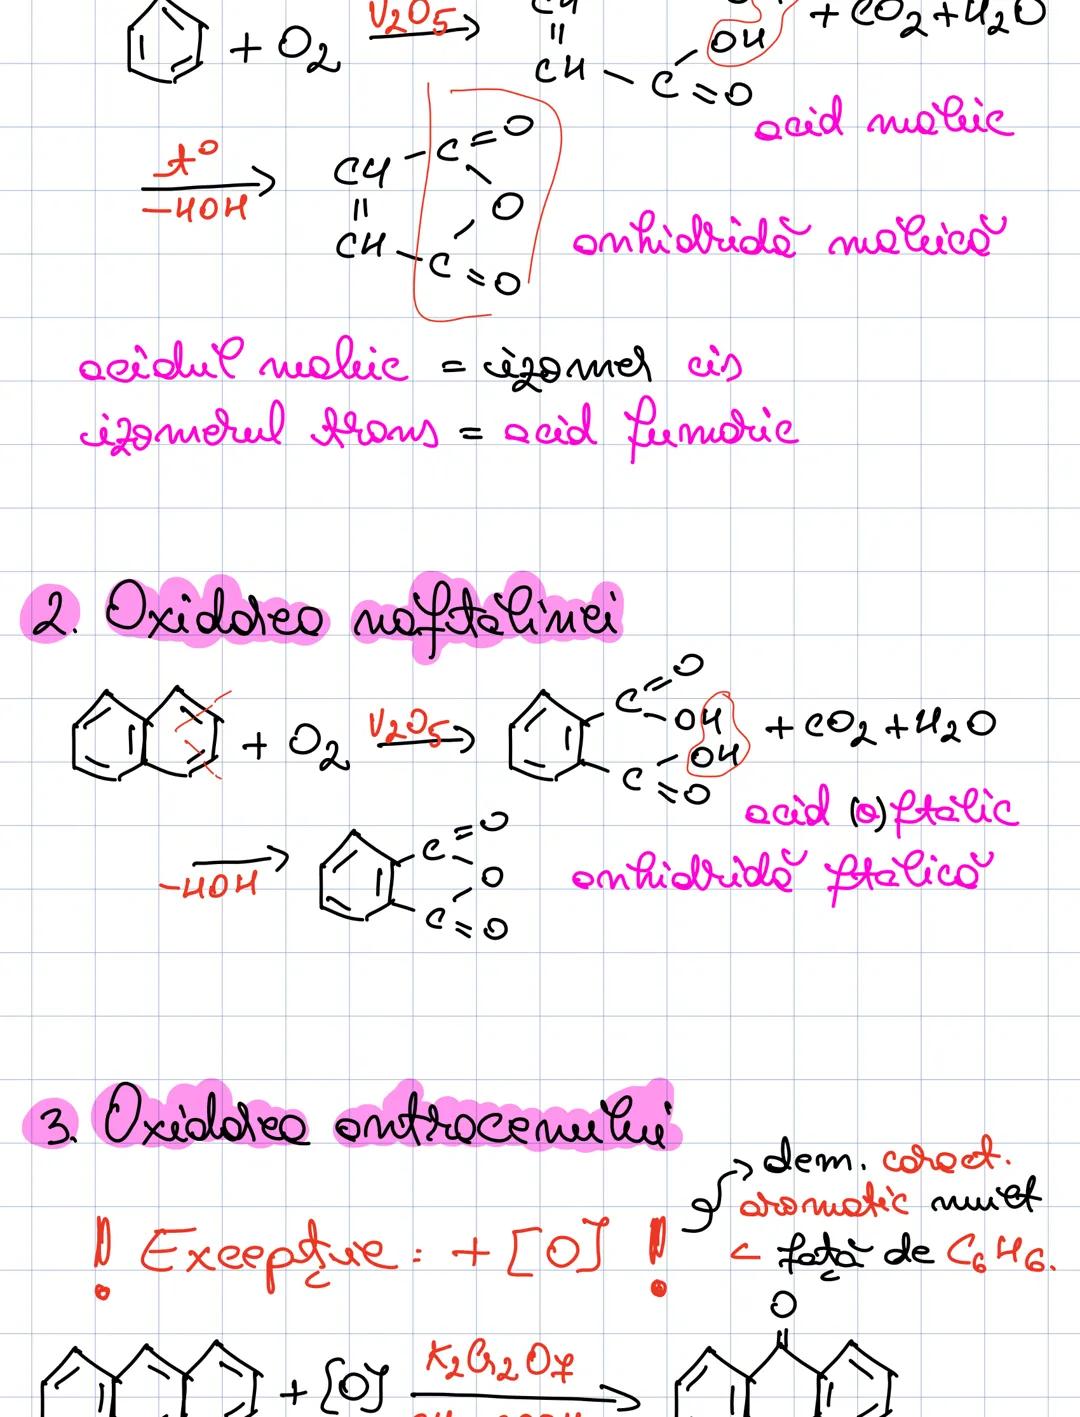 + O₂ V₂O₅ CH = CH - C = O OH + CO₂ + H₂O
acid maleic
t° -HOH CH = CH C = O O C = O
anhidridă maleică
acidul maleic = izomer cis
izomerul trans = acid fumaric
2. Oxidarea naftalinei
+ O₂ V₂O₅ C = O OH OH C = O + CO₂ + H₂O
acid (o) ftalic
-HOH C = O O C = O anhidridă ftalică
3. Oxidarea antracenului
dem. caract.
aromatic mult
! Excepție: + [O] ! < față de C₆H₆.
O
+ [O] K₂Cr₂O₇